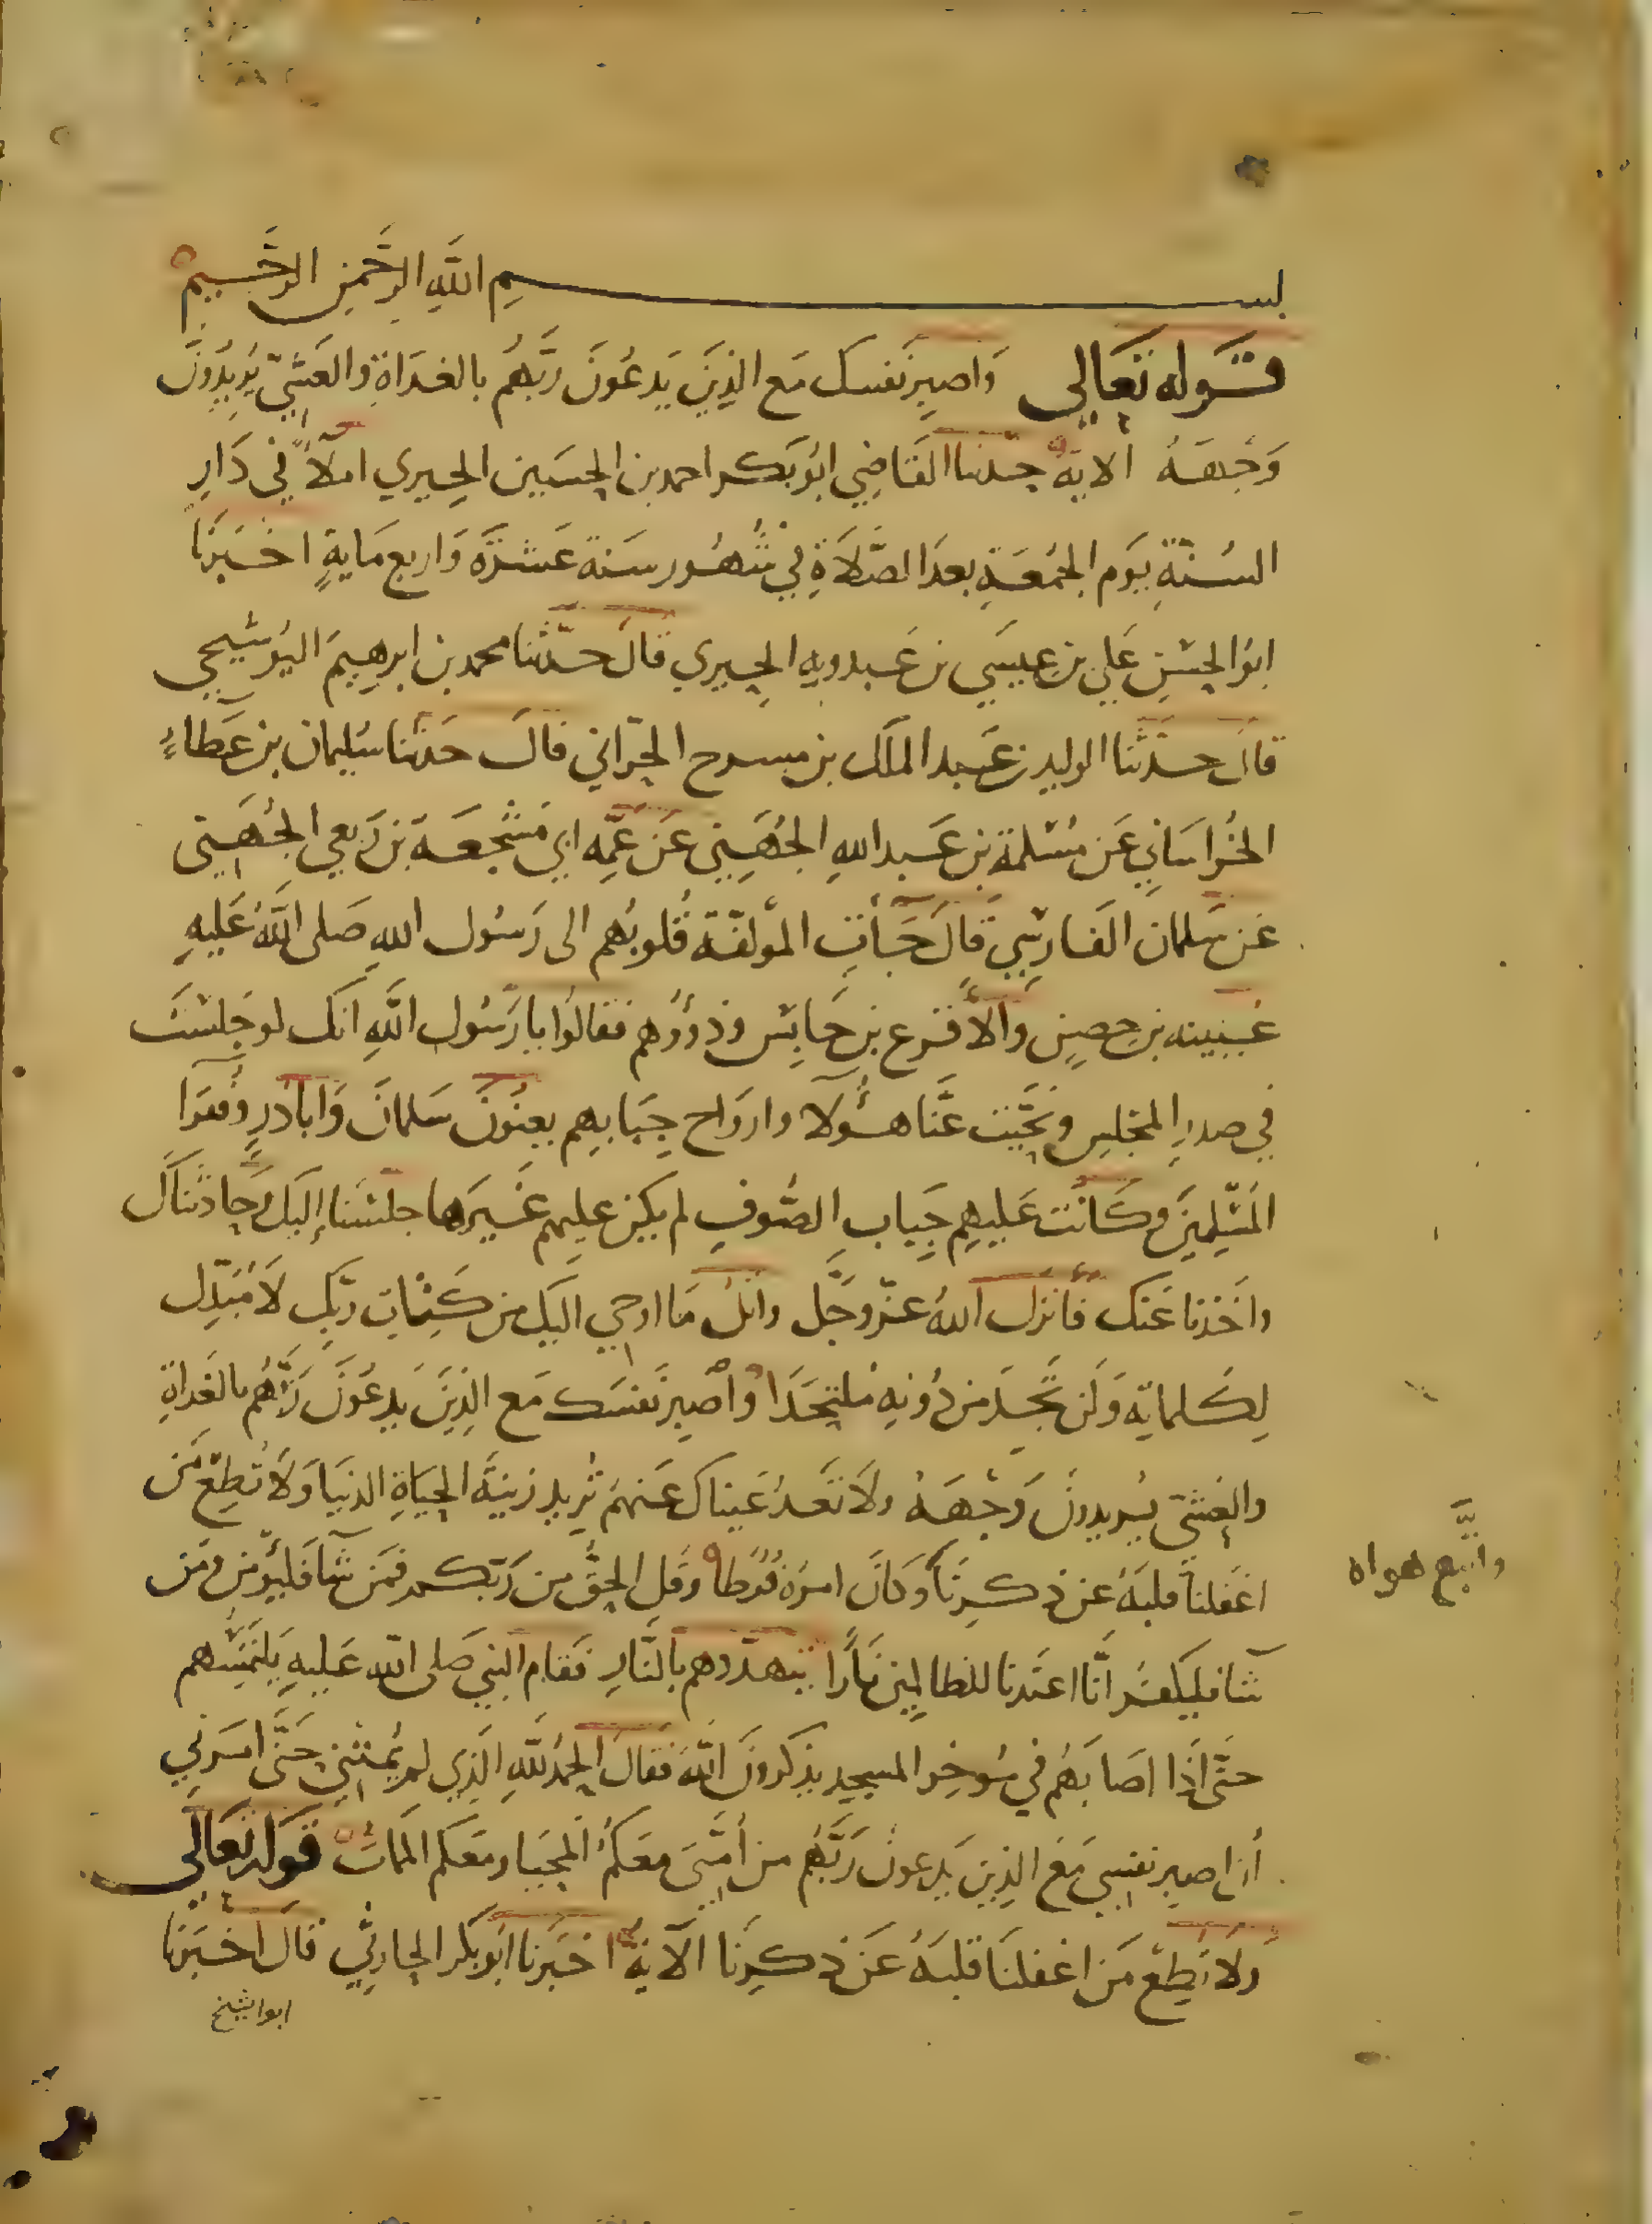 بسم الله الرحمن الرحيم
قوله تعالى واصبر نفسك مع الذين يدعون ربهم بالغداة والعشي يريدون
وجهه الاية حدثنا القاضي ابو بكر احمد بن الحسين الحيري املاء في دار
السنة يوم الجمعة بعد الصلاة في شهور سنة عشرة واربع ماية اخبرنا
ابو الحسن علي بن عيسى بن عبدويه الحيري قال حدثنا محمد بن ابرهيم البوشيحي
قال حدثنا الوليد بن عبد الملك بن مسرح الحراني قال حدثنا سليمان بن عطاء
الخراساني عن مسلمة بن عبد الله الجهني عن عمه ابي مشجعة بن ربعي الجهني
عن سلمان الفارسي قال جات المولفة قلوبهم الى رسول الله صلى الله عليه
عيينه بن حصن والاقرع بن حابس وذووهم فقالوا يا رسول الله انك لو جلست
في صدر المجلس ونحيت عنا هؤلا وارواح جبابهم يعنون سلمان وابا ذر وفقرا
المسلمين وكانت عليهم جباب الصوف لم يكن عليهم غيرها جلسنا إليك وحادثناك
واخذنا عنك فانزل الله عز وجل واتل ما اوحي اليك من كتاب ربك لا مبدل
لكلماته ولن تجد من دونه ملتحدا واصبر نفسك مع الذين يدعون ربهم بالغداة
والعشي يريدون وجهه ولا تعد عيناك عنهم تريد زينة الحياة الدنيا ولا تطع من
اغفلنا قلبه عن ذكرنا وكان امره فرطا وقل الحق من ربكم فمن شا فليؤمن ومن
واتبع هواه
شا فليكفر انا اعتدنا للظالمين نارا يتهددهم بالنار فقام النبي صلى الله عليه يلتمسهم
حتى اذا اصابهم في موخر المسجد يذكرون الله فقال الحمد لله الذي لم يمتني حتى امرني
أن اصبر نفسي مع الذين يدعون ربهم من أمتي معكم المحيا ومعكم الممات قوله تعالى
ولا تطع من اغفلنا قلبه عن ذكرنا الآية اخبرنا ابو بكر الحارثي قال اخبرنا
ابو الشيخ